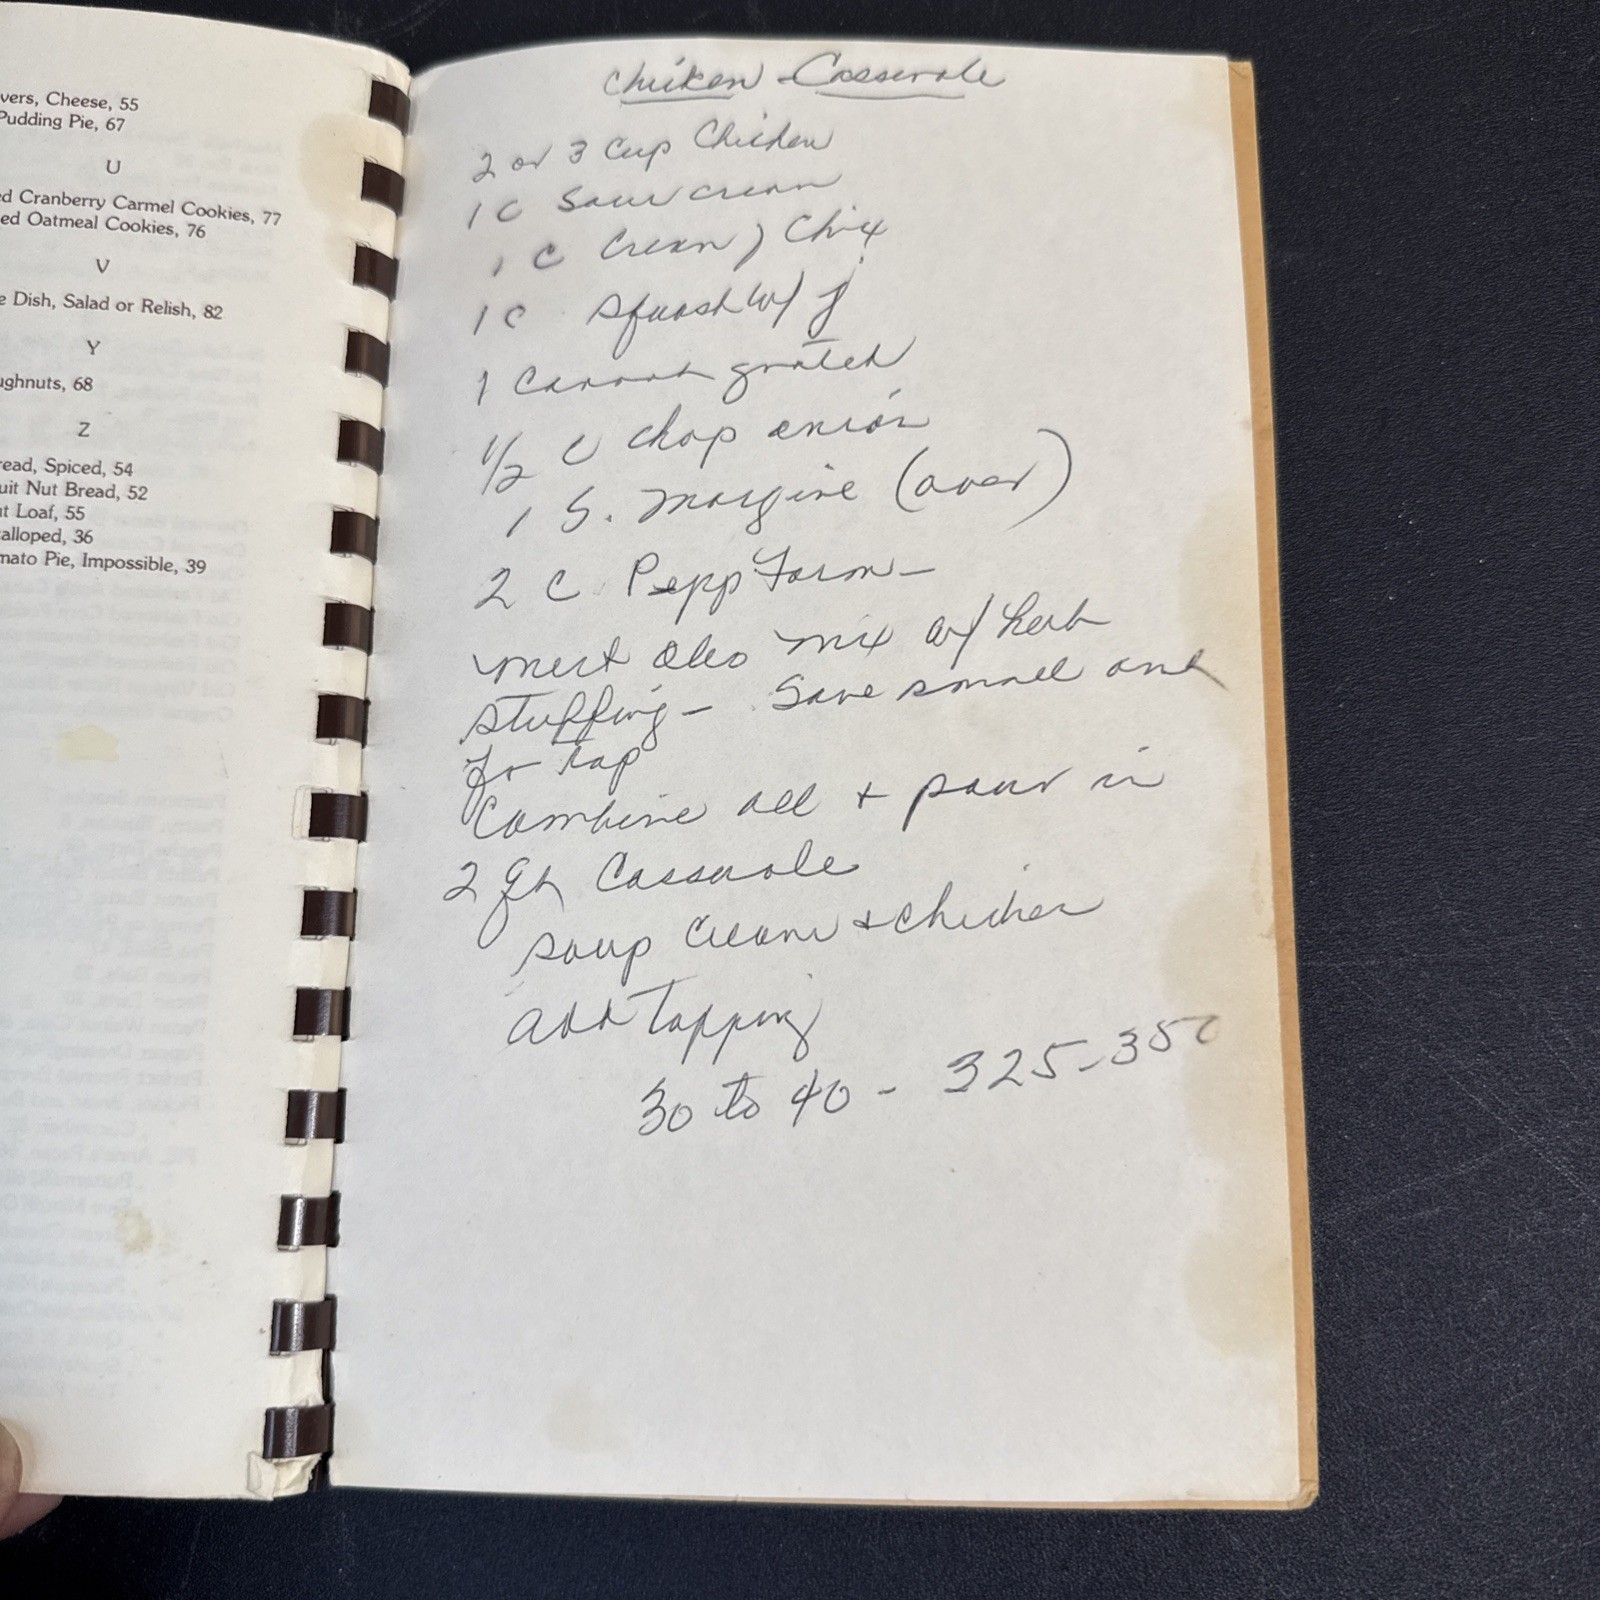 vers, Cheese, 55
Pudding Pie, 67
U
ed Cranberry Carmel Cookies, 77
ed Oatmeal Cookies, 76
V
e Dish, Salad or Relish, 82
Y
ughnuts, 68
Z
read, Spiced, 54
uit Nut Bread, 52
ut Loaf, 55
alloped, 36
mato Pie, Impossible, 39
Chicken Casserole
2 or 3 Cup Chicken
1 C Sour cream
1 C Cream Chix
1 C Squash w/ j
1 Carrot grated
1/2 C chop onion
1 S. Margine (over)
2 C Pepp Farm -
melt oleo mix w/ herb
stuffing - Save small amt
for top
Combine all + pour in
2 qt Casserole
soup cream + chicken
add topping
30 to 40 - 325-350